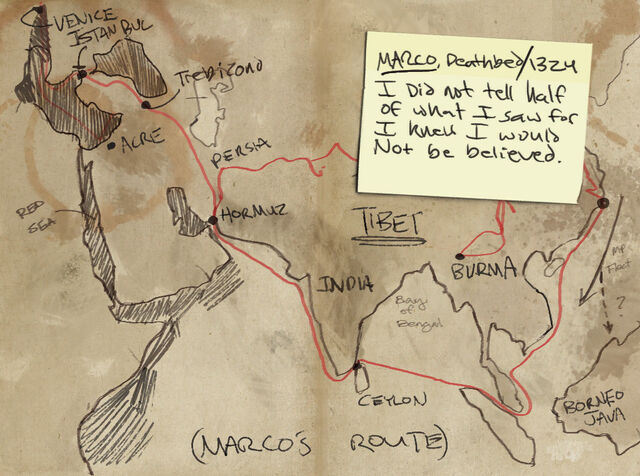 VENICE
ISTANBUL
Trebizond
ACRE
PERSIA
RED
SEA
HORMUZ
TIBET
INDIA
BURMA
Bay
of
Bengal
CEYLON
MP
Fleet
?
BORNEO
JAVA
(MARCO'S ROUTE)
MARCO, Deathbed/1324
I Did not tell half
of what I saw for
I knew I would
Not be believed.